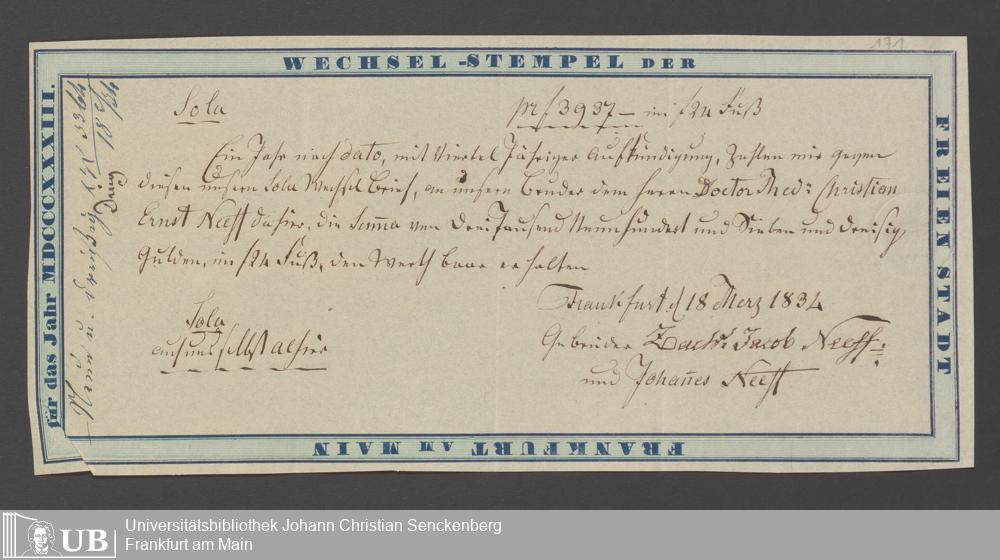 171
WECHSEL-STEMPEL DER
FREIEN STADT
FRANKFURT AM MAIN
für das Jahr MDCCCXXXIII.
Sola
pr f 3937 – im f 24 Fuß
Ein Jahr nach dato, mit viertel Jähriger Aufkündigung, Zahlen wir gegen
diesen unsern Sola Wechsel Brief, an unsern Bruder dem Herrn Doctor Med: Christian
Ernst Neeff dahier, die Suma von Drei Tausend Neunhundert und Sieben und Dreisig
Gulden, im f 24 Fuß, den Werth baar erhalten
Frankfurt d 18 Merz 1834
Sola
auf uns selbst alhier
Gebrüder Zachr. Jacob Neeff
und Johannes Neeff
Universitätsbibliothek Johann Christian Senckenberg
UB Frankfurt am Main